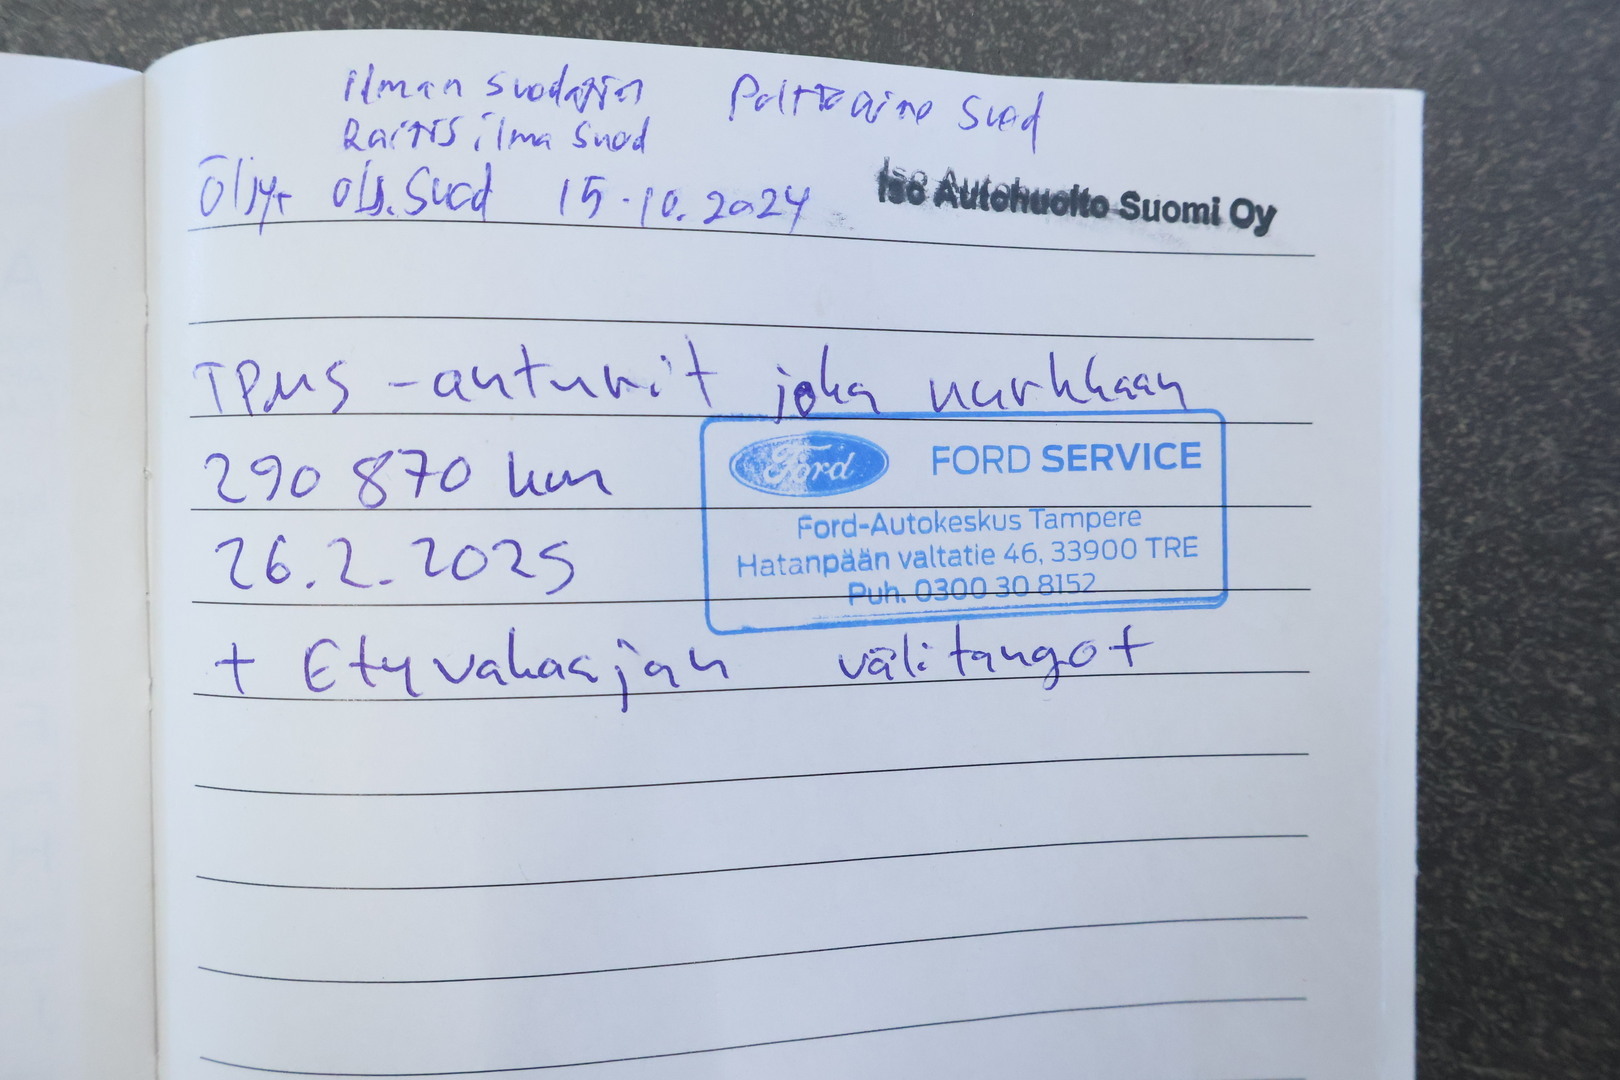 Ilman suodatin Polttoaine Suod
Raitis ilma Suod
Öljyt ölj.Suod 15.10.2024 Iso Autohuolto Suomi Oy
TPMS -anturit joka nurkkaan
290 870 km
Ford FORD SERVICE
Ford-Autokeskus Tampere
26.2.2025
Hatanpään valtatie 46, 33900 TRE
Puh. 0300 30 8152
+ Etyvakaajan välitangot